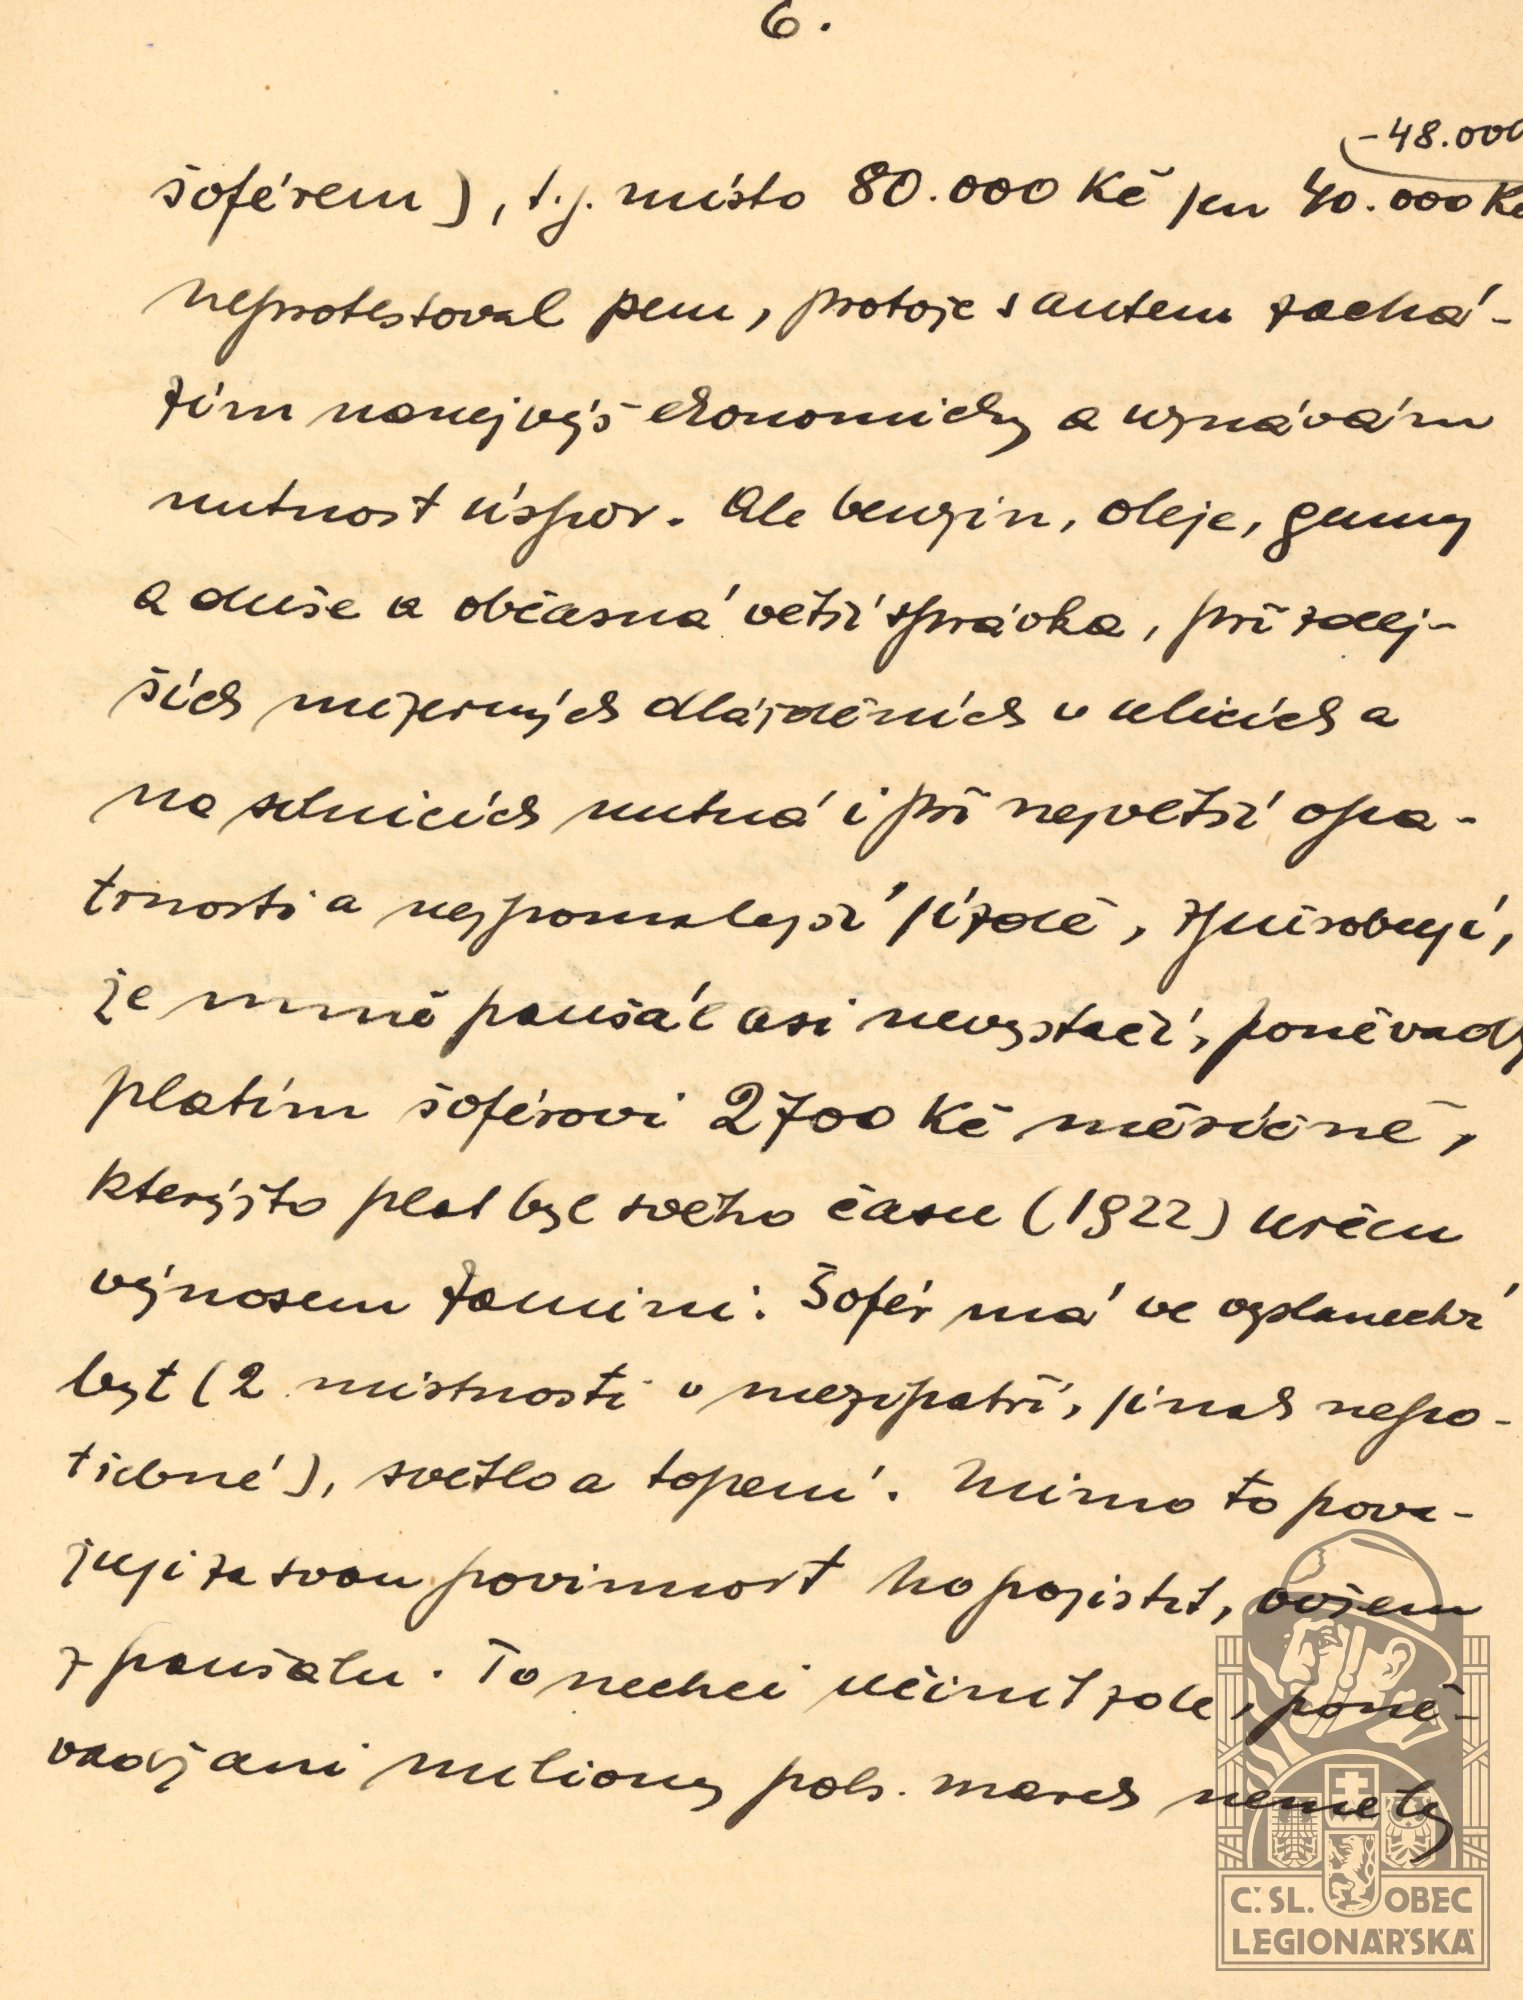 6.
-48.000
šoférem), t.j. místo 80.000 Kč jen 40.000 Kč
neprotestoval jsem, protože s autem zachá-
zím nanejvýš ekonomicky a uznávám
nutnost úspor. Ale benzin, oleje, gumy
a duše a občasná větší správka, při zdej-
ších mizerných dlážděních v ulicích a
na silnicích nutná i při největší opa-
trnosti a nejpomalejší jízdě, způsobují,
že mně paušál asi nevystačí, poněvadž
platím šoférovi 2700 Kč měsíčně,
kterýžto plat byl svého času (1922) určen
výnosem zamini. Šofér má ve vyslanectví
byt (2 místnosti v mezipatří, jinak nepo-
třebné), světlo a topení. Mimo to pova-
žuji za svou povinnost ho pojistit, ovšem
z paušálu. To nechci učinit zde, poně-
vadž ani miliony pols. marek neměly
Č.SL. OBEC
LEGIONÁŘSKÁ